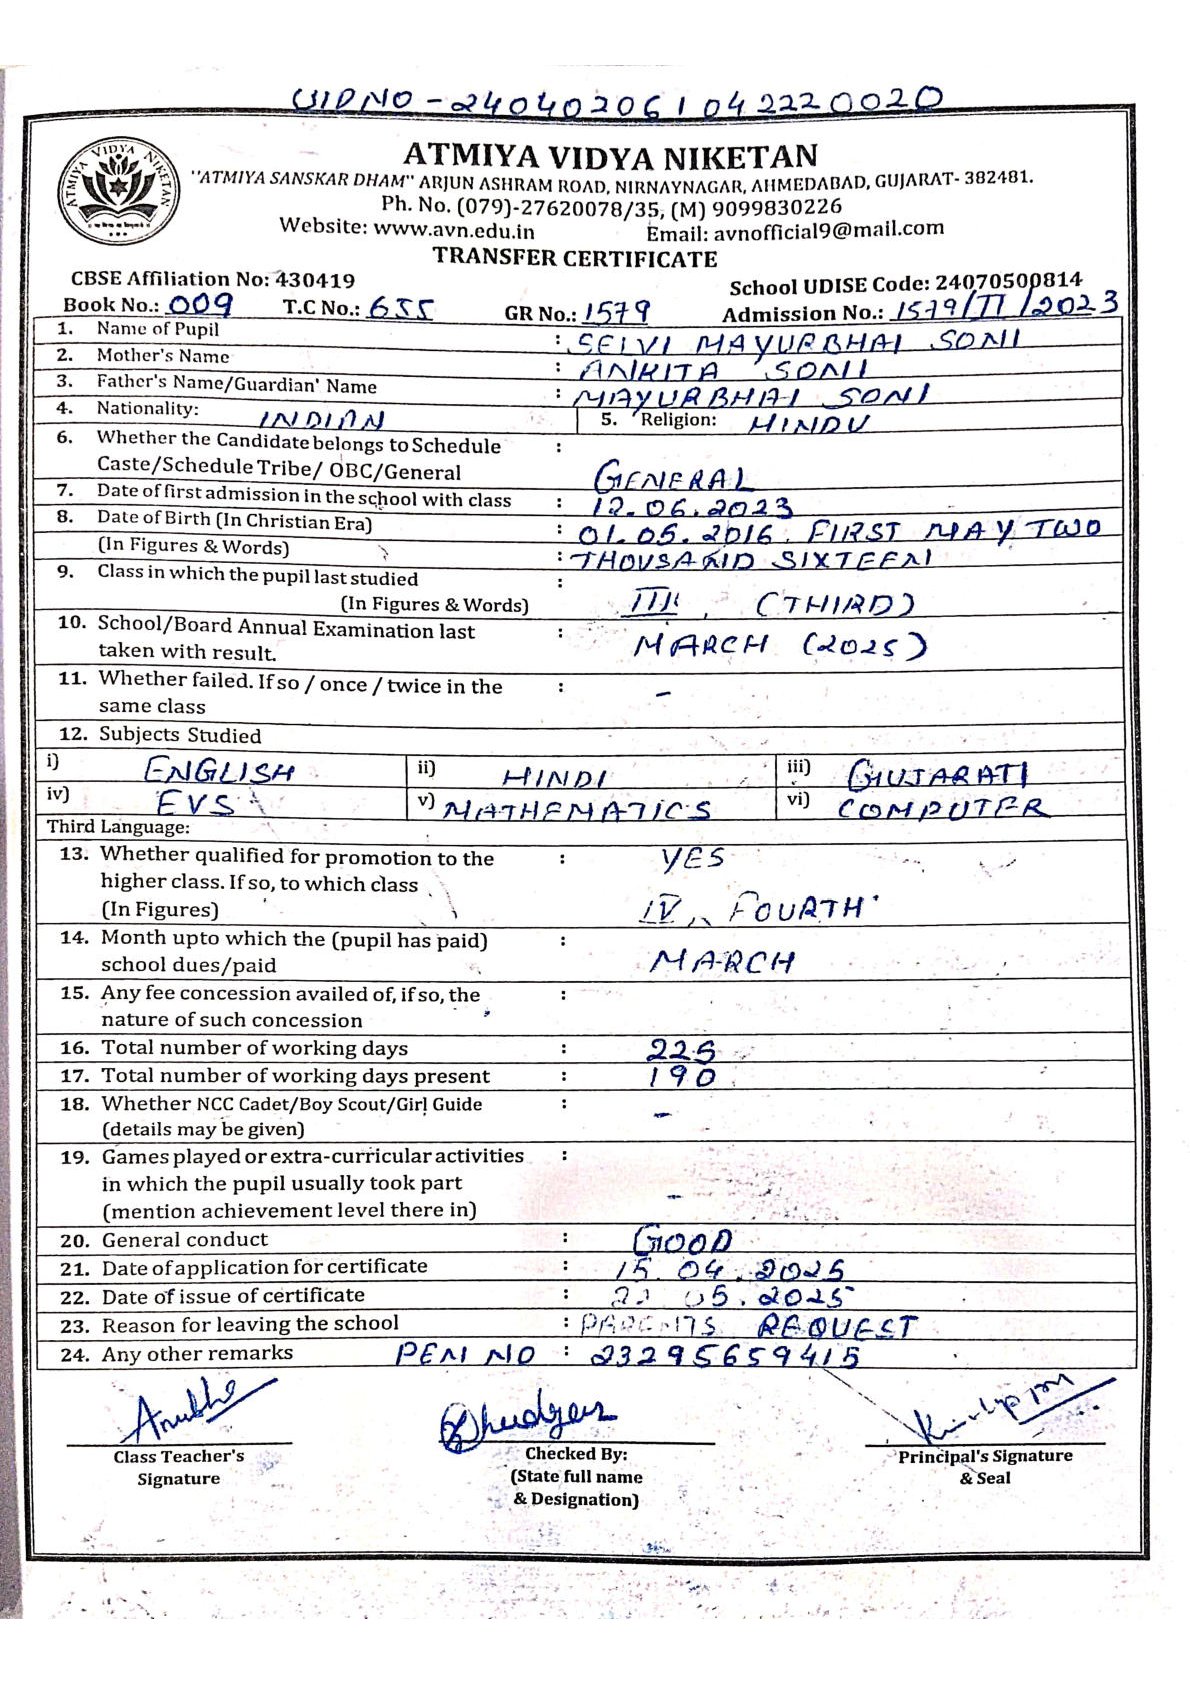 UID NO - 240402061042220020
ATMIYA VIDYA NIKETAN
ATMIYA VIDYA NIKETAN
"ATMIYA SANSKAR DHAM" ARJUN ASHRAM ROAD, NIRNAYNAGAR, AHMEDABAD, GUJARAT- 382481.
Ph. No. (079)-27620078/35, (M) 9099830226
Website: www.avn.edu.in Email: avnofficial9@mail.com
TRANSFER CERTIFICATE
CBSE Affiliation No: 430419 School UDISE Code: 24070500814
Book No.: 009 T.C No.: 655 GR No.: 1579 Admission No.: 1579/II/2023
1. Name of Pupil : SELVI MAYURBHAI SONI
2. Mother's Name : ANKITA SONI
3. Father's Name/Guardian' Name : MAYURBHAI SONI
4. Nationality: INDIAN 5. Religion: HINDU
6. Whether the Candidate belongs to Schedule :
Caste/Schedule Tribe/ OBC/General GENERAL
7. Date of first admission in the school with class : 12.06.2023
8. Date of Birth (In Christian Era) : 01.05.2016. FIRST MAY TWO
(In Figures & Words) : THOUSAND SIXTEEN
9. Class in which the pupil last studied :
(In Figures & Words) III, (THIRD)
10. School/Board Annual Examination last :
taken with result. MARCH (2025)
11. Whether failed. If so / once / twice in the : -
same class
12. Subjects Studied
i) ENGLISH ii) HINDI iii) GUJARATI
iv) EVS v) MATHEMATICS vi) COMPUTER
Third Language:
13. Whether qualified for promotion to the : YES
higher class. If so, to which class
(In Figures) IV, FOURTH
14. Month upto which the (pupil has paid) :
school dues/paid MARCH
15. Any fee concession availed of, if so, the :
nature of such concession
16. Total number of working days : 225
17. Total number of working days present : 190
18. Whether NCC Cadet/Boy Scout/Girl Guide : -
(details may be given)
19. Games played or extra-curricular activities :
in which the pupil usually took part -
(mention achievement level there in)
20. General conduct : GOOD
21. Date of application for certificate : 15.04.2025
22. Date of issue of certificate : 05.2025
23. Reason for leaving the school : PARENTS REQUEST
24. Any other remarks PEN NO : 23295659415
Class Teacher's Checked By: Principal's Signature
Signature (State full name & Seal
& Designation)